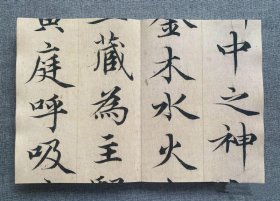 中之神
金木水火
藏為主
黃庭呼吸